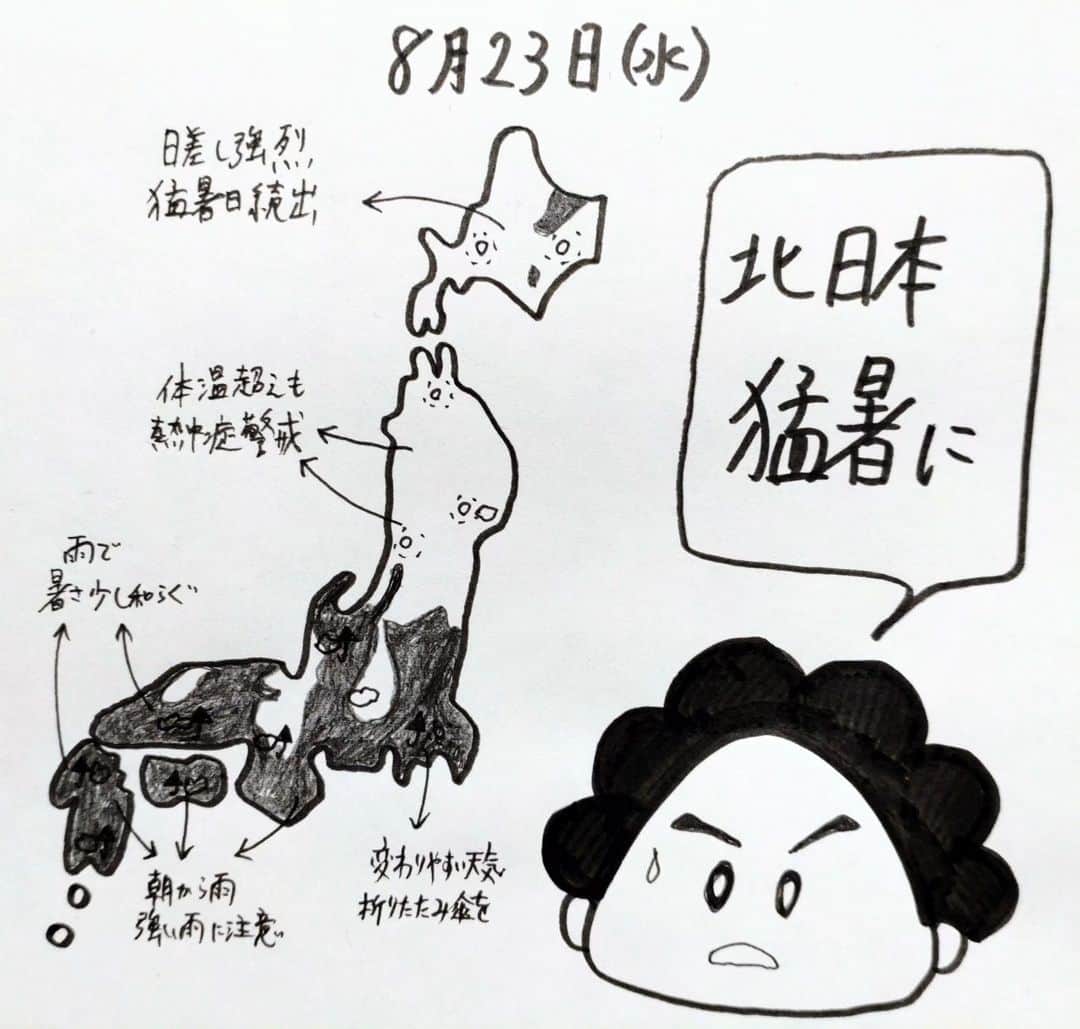 8月23日(水)
日差し強烈
猛暑日続出
北日本
猛暑に
体温超えも
熱中症警戒
雨で
暑さ少し和らぐ
朝から雨
強い雨に注意
変わりやすい天気
折りたたみ傘を